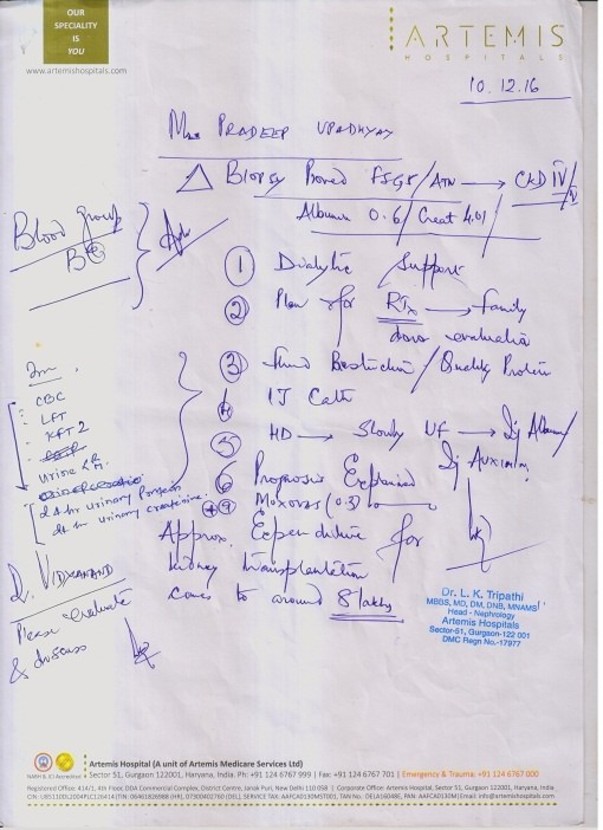 OUR
SPECIALITY
IS
YOU
www.artemishospitals.com
ARTEMIS
HOSPITALS
10.12.16
PRADEEP UPADHYAY
△ Biopsy Proved FSGS/ATN → CKD IV/V
Albumin 0.6/ Creat 4.01
Blood group
B⊕
① Dialytic Support
② Plan for RTx → family
donor evaluation
③ Fluid Restriction / Quality Protein
④ IJ Cath
⑤ HD → Slowly UF → Inj Albumin
6 Prognosis Explained
Moxovas (0.3)
CBC
LFT
KFT 2
Urine
24 hr urinary protein
24 hr urinary creatinine.
Approx. Expenditure for
kidney transplantation
comes to around 8 lakhs
Dr. VIDYANAND
Please evaluate
& discuss
Dr. L. K. Tripathi
MBBS, MD, DM, DNB, MNAMS
Head - Nephrology
Artemis Hospitals
Sector-51, Gurgaon-122 001
DMC Regn No.-17977
Artemis Hospital (A unit of Artemis Medicare Services Ltd)
NABH & JCI Accredited Sector 51, Gurgaon 122001, Haryana, India. Ph: +91 124 6767 999 | Fax: +91 124 6767 701 | Emergency & Trauma: +91 124 676 000
Registered Office: 414/1, 4th Floor, DDA Commercial Complex, District Centre, Janak Puri, New Delhi 110 058 | Corporate Office: Artemis Hospital, Sector 51, Gurgaon 122001, Haryana, India
Email: info@artemishospitals.com